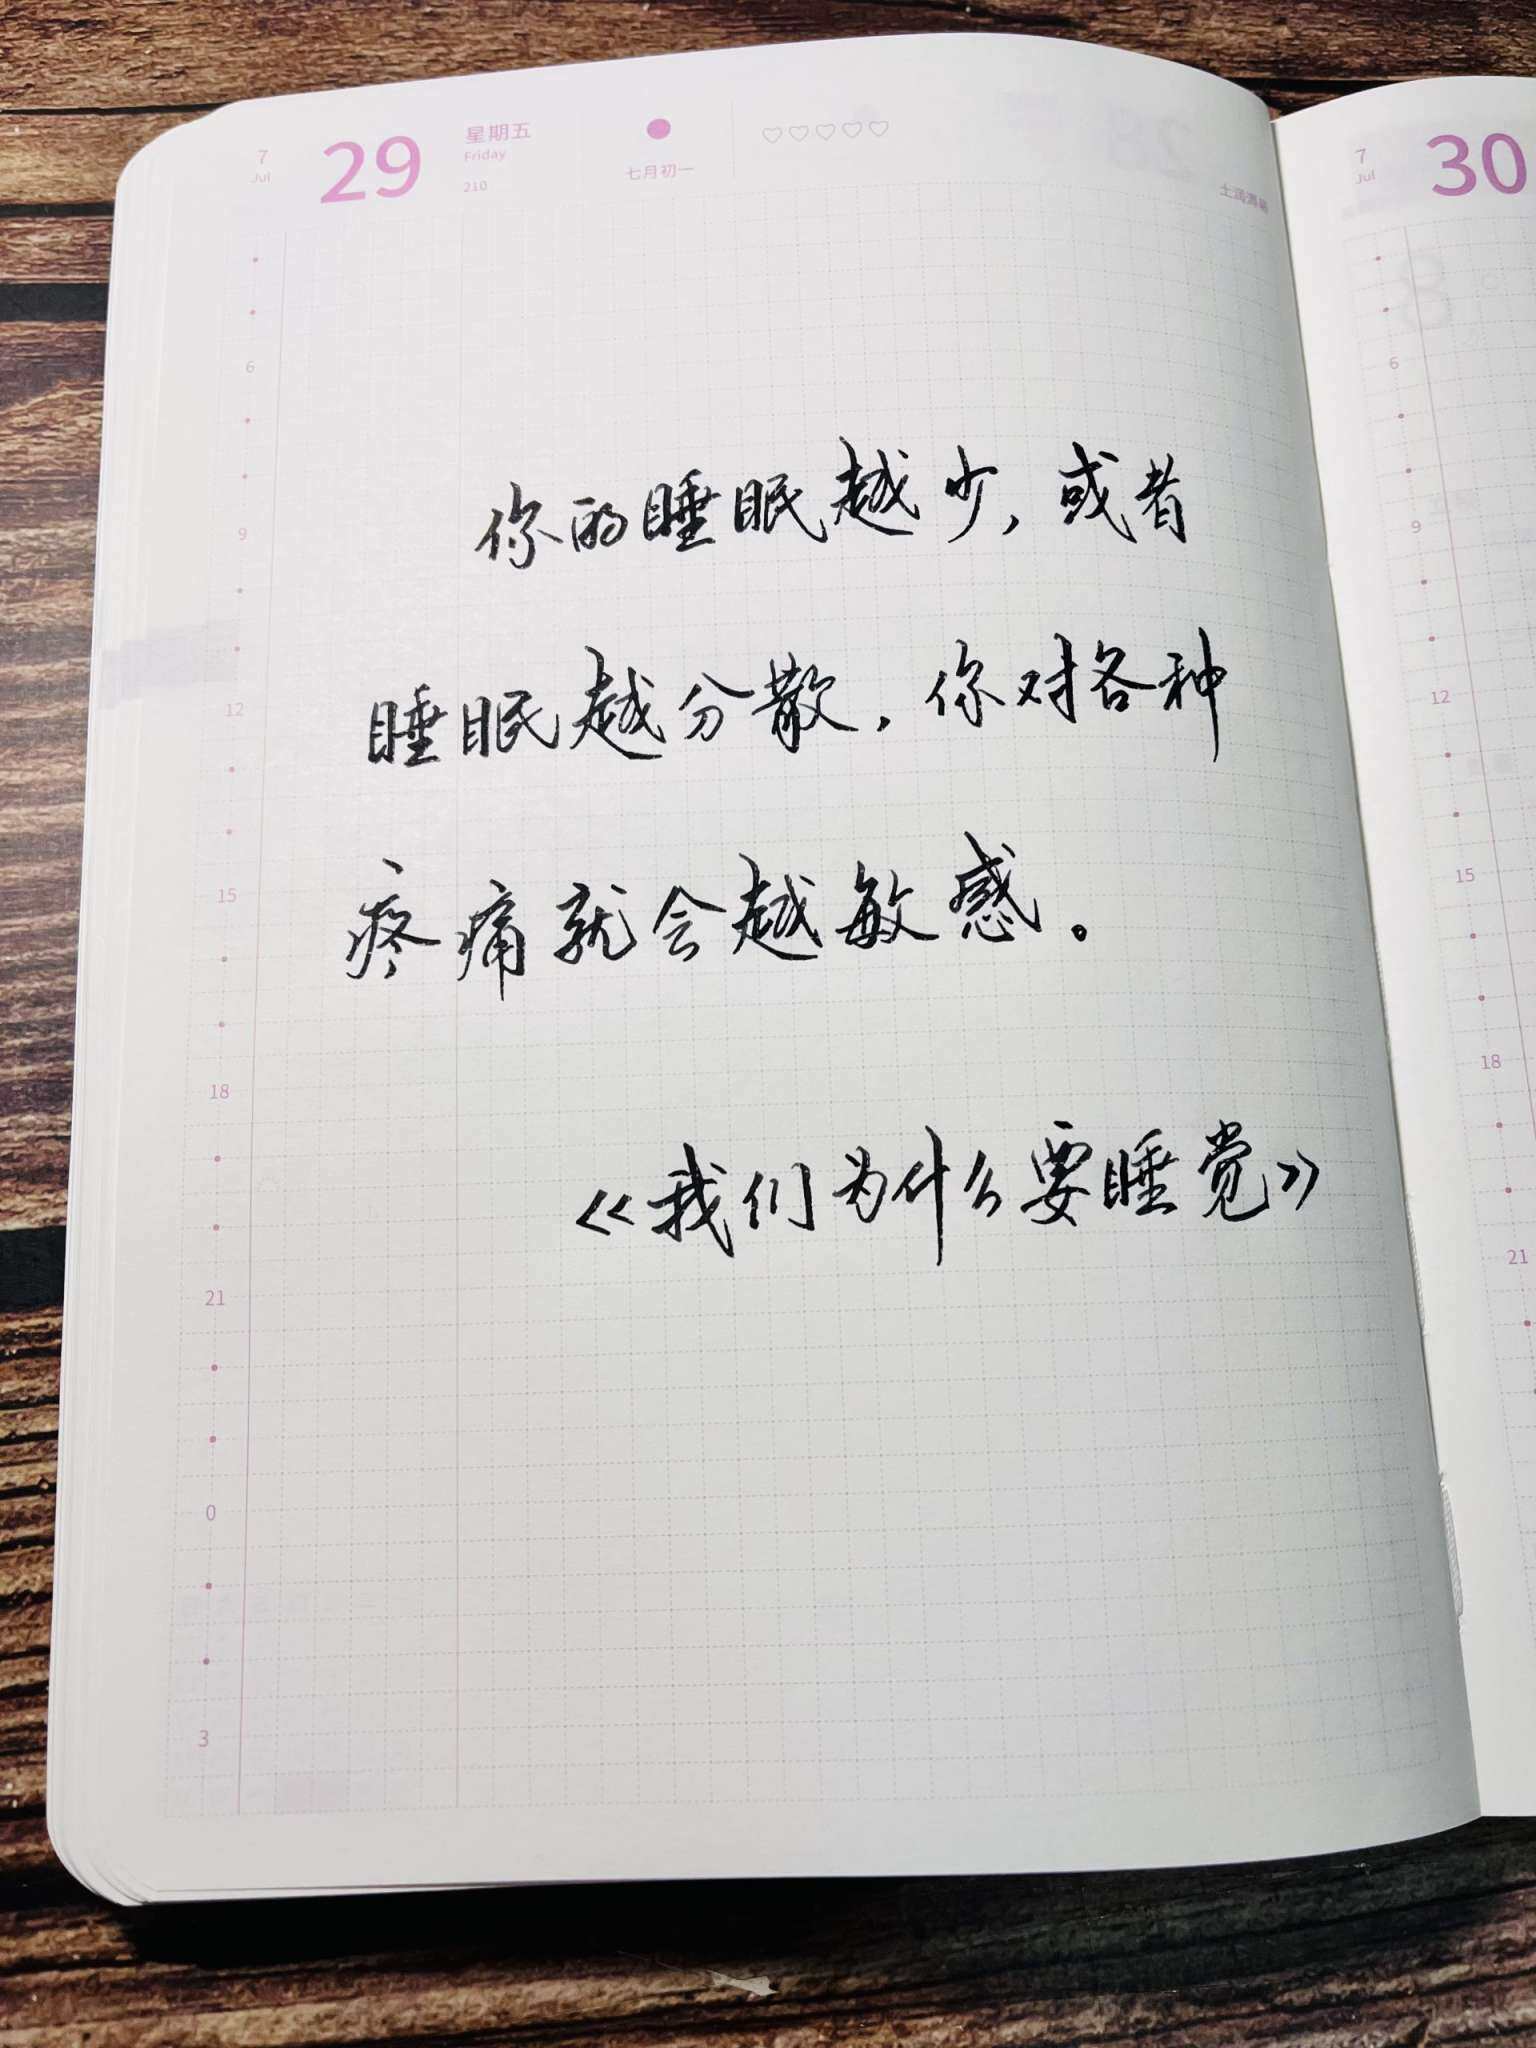 7
Jul
29
星期五
Friday
210
七月初一
7
Jul
30
6
9
12
15
18
21
0
3
你的睡眠越少，或者
睡眠越分散，你对各种
疼痛就会越敏感。
《我们为什么要睡觉》
6
9
12
15
18
21